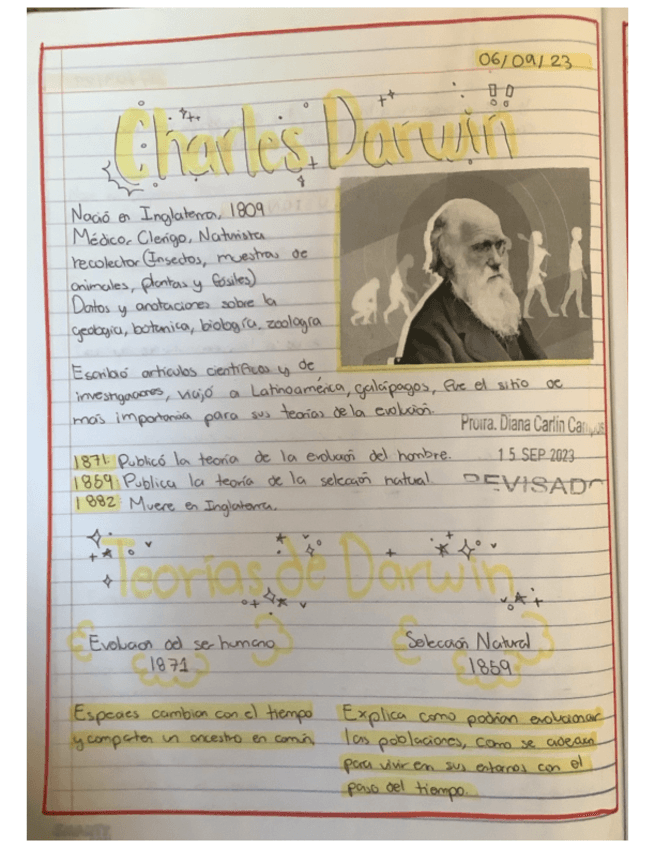 06/09/23
Charles Darwin
Nació en Inglaterra, 1809
Médico, Clerigo, Naturista
recolector (Insectos, muestras de
animales, plantas y fósiles)
Datos y anotaciones sobre la
geologia, botanica, biología, zoología
Escribió artículos científicos y de
investigaciones, viajó a Latinoamérica, galápagos, fue el sitio de
mas importania para sus teorías de la evolución.
Profra. Diana Carlín
1871: Publicó la teoría de la evolucion del hombre.
15 SEP 2023
1859: Publica la teoría de la selección natural.
REVISADO
1882: Muere en Inglaterra.
Teorías de Darwin
Evolucion del ser humano
1871
Selección Natural
1859
Especies cambian con el tiempo
y comparten un ancestro en común
Explica como podrian evolucionar
las poblaciones, como se adecuan
para vivir en sus entornos con el
paso del tiempo.